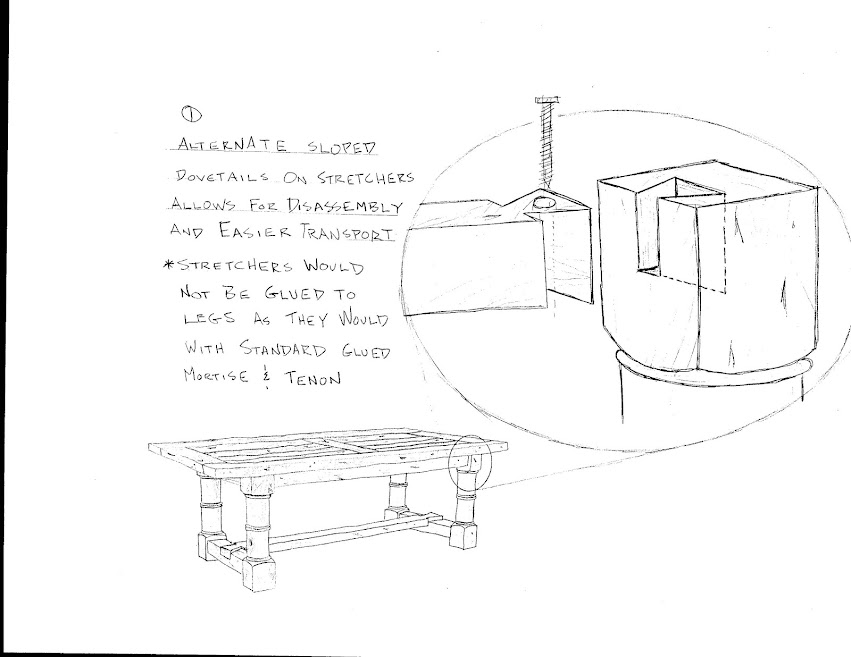 ①
ALTERNATE SLOPED
DOVETAILS ON STRETCHERS
ALLOWS FOR DISASSEMBLY
AND EASIER TRANSPORT
*STRETCHERS WOULD
NOT BE GLUED TO
LEGS AS THEY WOULD
WITH STANDARD GLUED
MORTISE & TENON